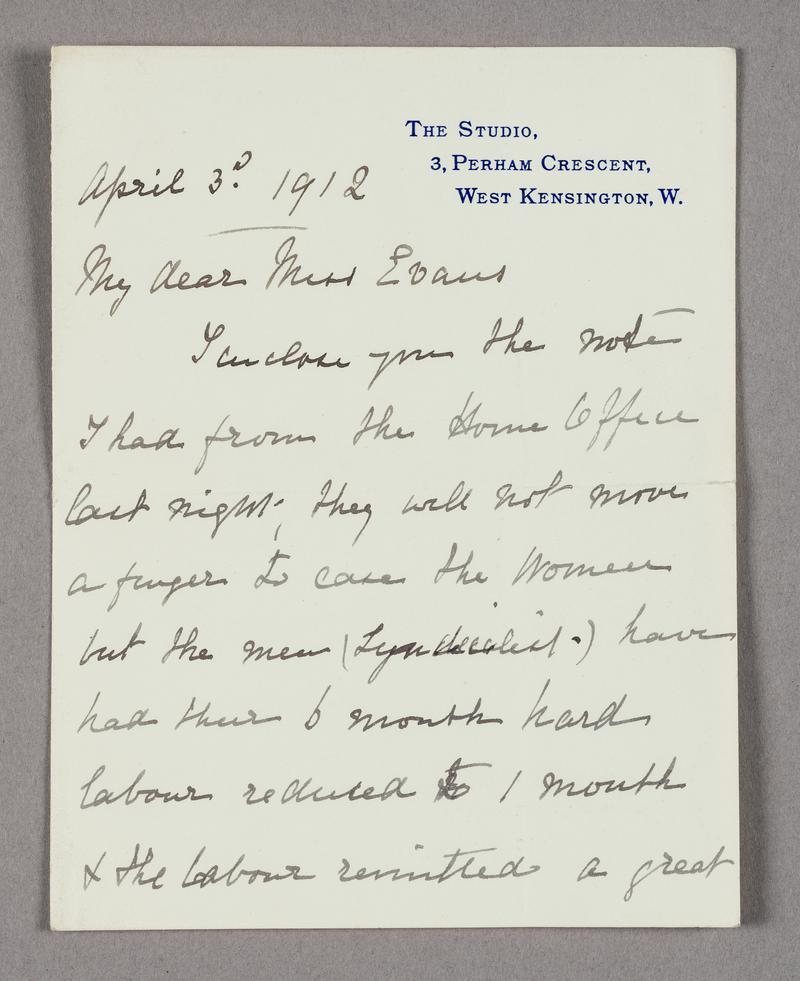 THE STUDIO,
3, PERHAM CRESCENT,
WEST KENSINGTON, W.
April 3d. 1912
My dear Miss Evans
I enclose you the note
I had from the Home Office
last night; they will not move
a finger to ease the Women
but the men (Syndicalist.) have
had their 6 month hard
labour reduced to 1 month
& the labour remitted a great